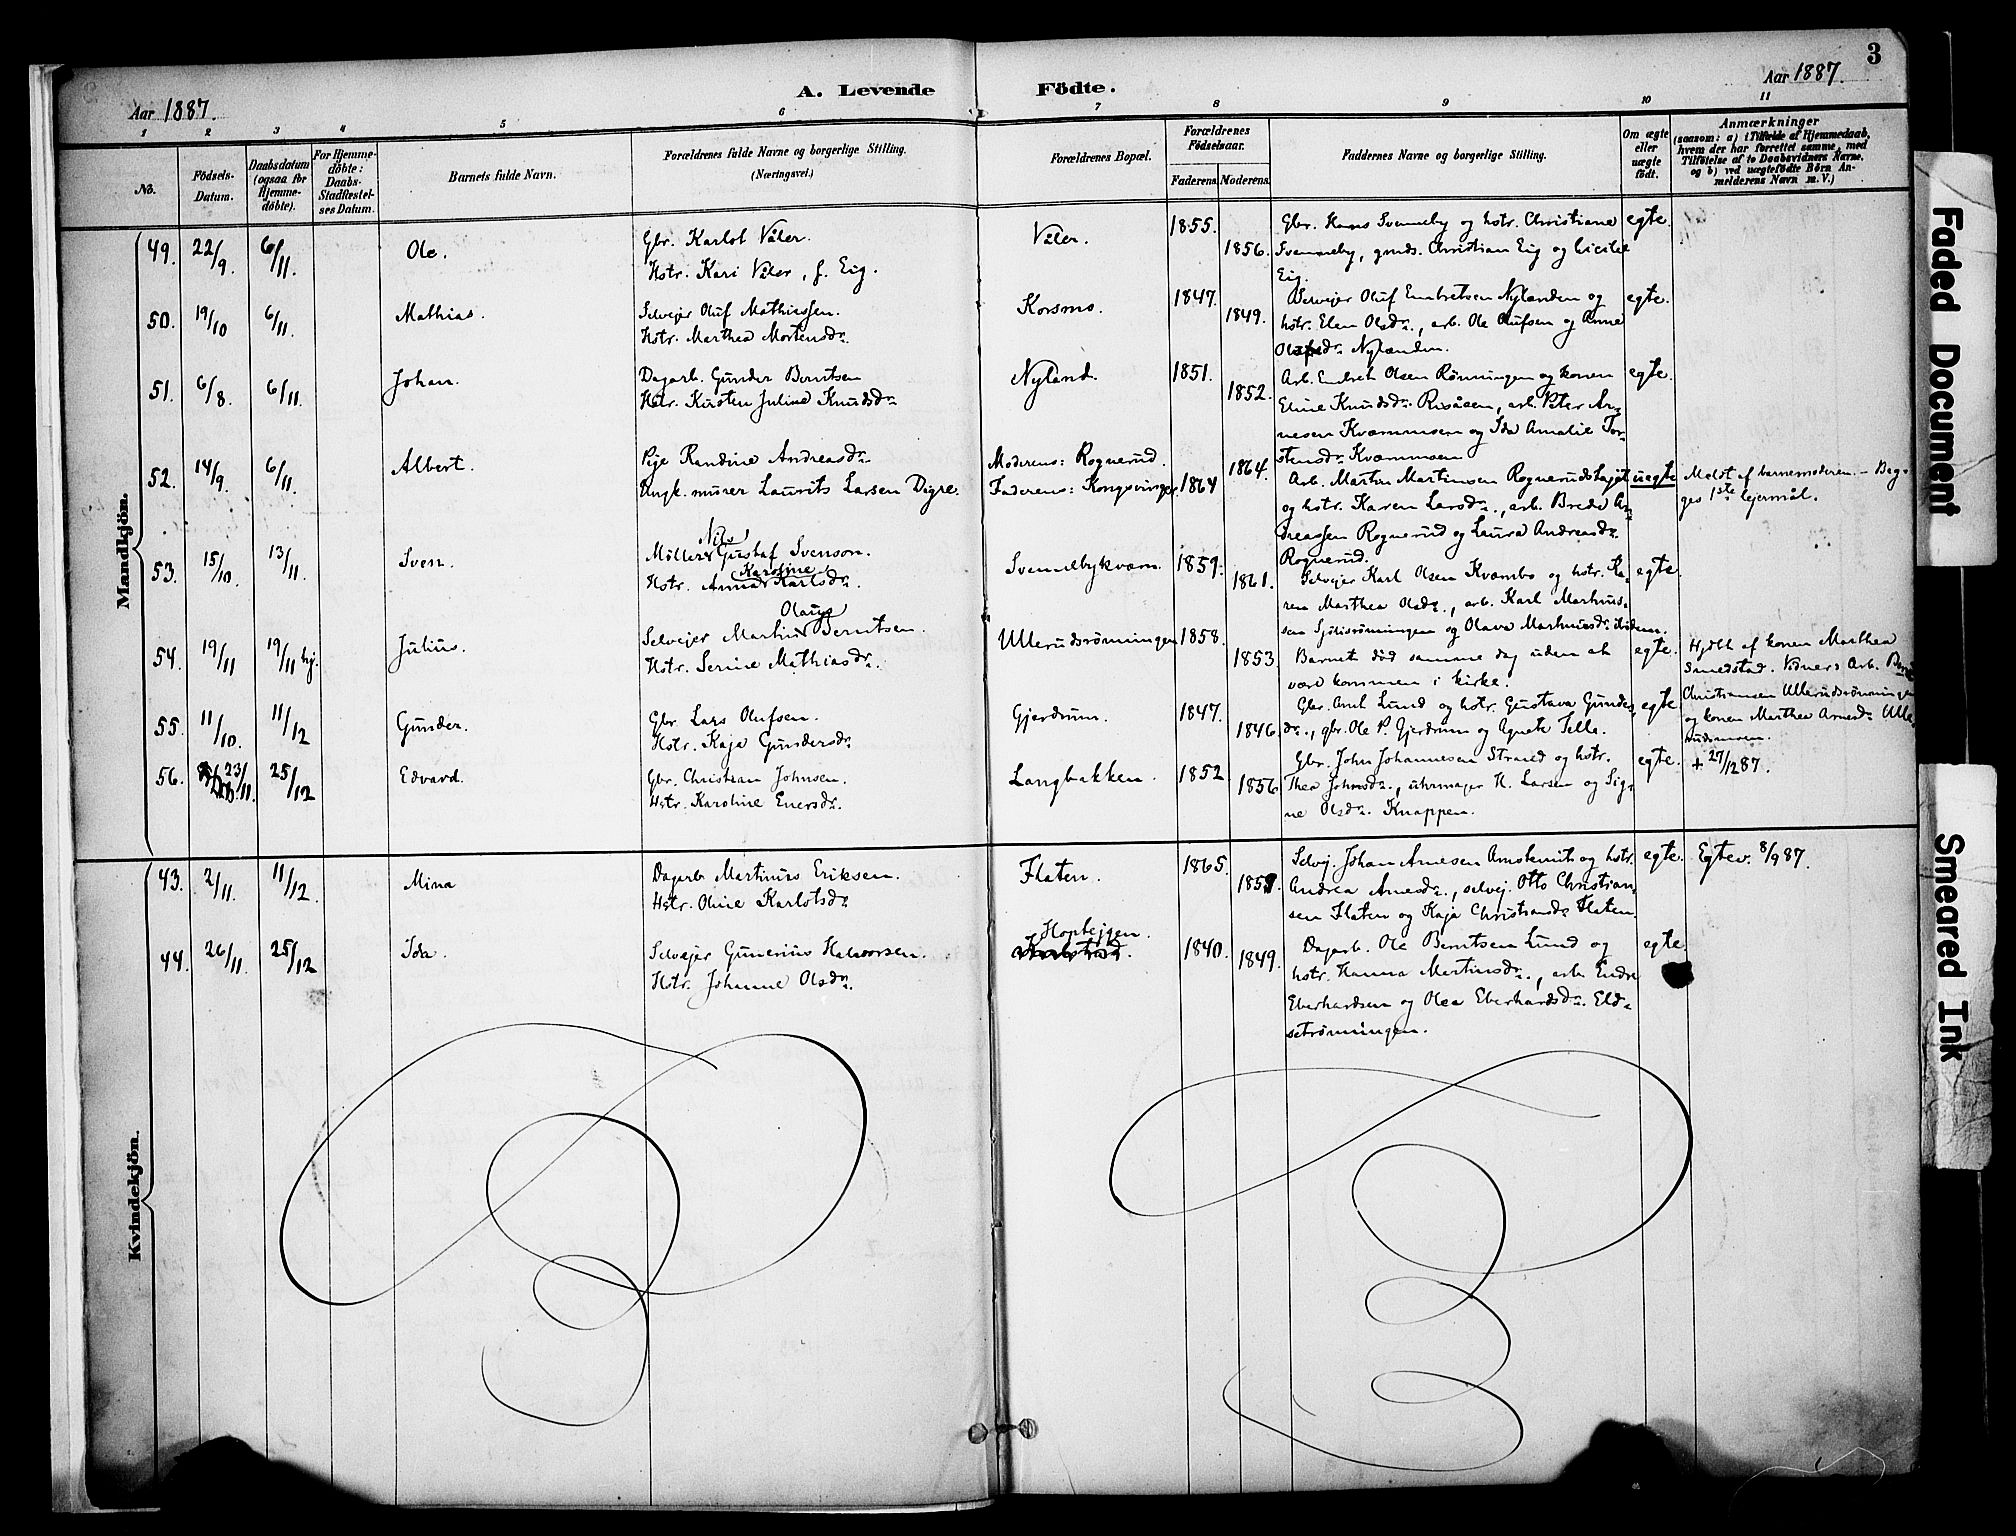 3
Aar 1887.
A. Levende Födte.
Aar 1887.
1 2 3 4 5 6 7 8 9 10 11
No.
Födsels-
Datum.
Daabsdatum
(ogsaa for
Hjemme-
döbte).
For Hjemme-
döbte:
Daabs-
Stadfæstel-
ses Datum.
Barnets fulde Navn.
Forældrenes fulde Navne og borgerlige Stilling.
(Næringsvei.)
Forældrenes Bopæl.
Forældrenes
Födselsaar.
Faderens. Moderens.
Faddernes Navne og borgerlige Stilling.
Om ægte
eller
uægte
födt.
Anmærkninger
(saasom: a) i Tilfælde af Hjemmedaab,
hvem der har forrettet samme, med
Tilföielse af to Daabsvidners Navne,
og b) ved uægtefödte Börn An-
melderens Navn m. V.)
Mandkjön.
49. 22/9. 6/11. Ole.
Gbr. Karlot Våler.
Hstr. Kari Våler, f. Eig.
Våler. 1855. 1856.
Gbr. Hans Svenneby og hstr. Christiane
Svenneby, grnds. Christian Eig og Cicilie
Eig.
egte.
50. 19/10 6/11. Mathias.
Selvejer Oluf Mathiassen.
Hstr. Marthea Mortensdr.
Korsmo. 1847. 1849.
Selvejer Oluf Embretsen Nylænden og
hstr. Elen Olsdr., arb. Ole Olufsen og Anne
Nylænden.
egte.
51. 6/8. 6/11. Johan.
Dagarb. Gunder Berntsen
Hstr. Kirsten Juline Knudsdr.
Nyland. 1851. 1852.
Arb. Embret Olsen Rönningen og konen
Eline Knudsdr. Risåsen, arb. Peter Ar-
nesen Kvæmmoen og Ida Amalie Tor-
stensdr. Kvæmmoen
egte.
52. 14/9. 6/11. Albert.
Pige Randine Andreasdr.
Ungk. murer Laurits Larsen Digre.
Moderens: Rognerud.
Faderens: Kongsvinger. 1864 1864.
Arb. Martin Martinsen Rognerudshagen
og hstr. Karen Larsdr., arb. Brede An-
dreassen Rognerud og Laura Andreasdr.
Rognerud.
uegte
Meldt af barnemoderen. – Beg-
ges 1ste lejermål.
53. 15/10. 13/11. Sven.
Nils
Möller Gustaf Svenson.
Karoline
Hstr. Anna Karlsdr.
Svennebykværn. 1859. 1861.
Selvejer Karl Olsen Kvæmbo og hstr. Ka-
ren Marthea Olsdr., arb. Karl Marthinus-
sen Sjölisrönningen og Olava Marthinusdr. ibidem.
egte.
54. 19/11 19/11 hj. Julius.
Olaus
Selvejer Martin Berntsen.
Hstr. Serine Mathiasdr.
Ullerudsrönningen 1858. 1853.
Barnet död samme dag uden at
være kommen i kirke.
egte.
Hjdbt af konen Marthea
Smedstad. Vidner: Arb. Bernt
Christiansen Ullerudsrönningen
og konen Marthea Arnesdr. Ulle-
rudsmoen.
55. 11/10. 11/12 Gunder.
Gbr Lars Olufsen.
Hstr. Kaja Gundersdr.
Gjerdrum. 1847. 1846.
Gbr. Aml Lund og hstr. Gustava Gunders-
dr., gbr. Ole P. Gjerdrum og Agnete Selle.
egte
56. 23/11. 25/12 Edvard.
Gbr. Christian Johnsen.
Hstr. Karoline Enersdr.
Langbakken. 1852 1856
Gbr. John Johannesen Strand og hstr.
Thea Johnsdr., uhrmager H. Larsen og Sig-
ne Olsdr. Knappen.
egte.
+ 27/12 87.
Kvindekjön.
43. 2/11. 11/12 Mina
Dagarb Martinus Eriksen.
Hstr. Oline Karlotsdr.
Flaten. 1865. 1859.
Selvej. Johan Arnesen Arnstenits og hstr.
Andrea Arnesdr., selvej. Otto Christian-
sen Flaten og Kaja Christiansdr. Flaten.
egte.
Egtev. 8/9 87.
44. 26/11. 25/12 Ida.
Selvejer Gunerius Halvorsen.
Hstr. Johanne Olsdr.
Hoptejgen.
1840. 1849.
Dagarb. Ole Berntsen Lund og
hstr. Hanna Martinsdr., arb Endre
Eberhardsen og Olea Eberhardsdr. Eld-
setrönningen.
egte
Faded Document
Smeared Ink